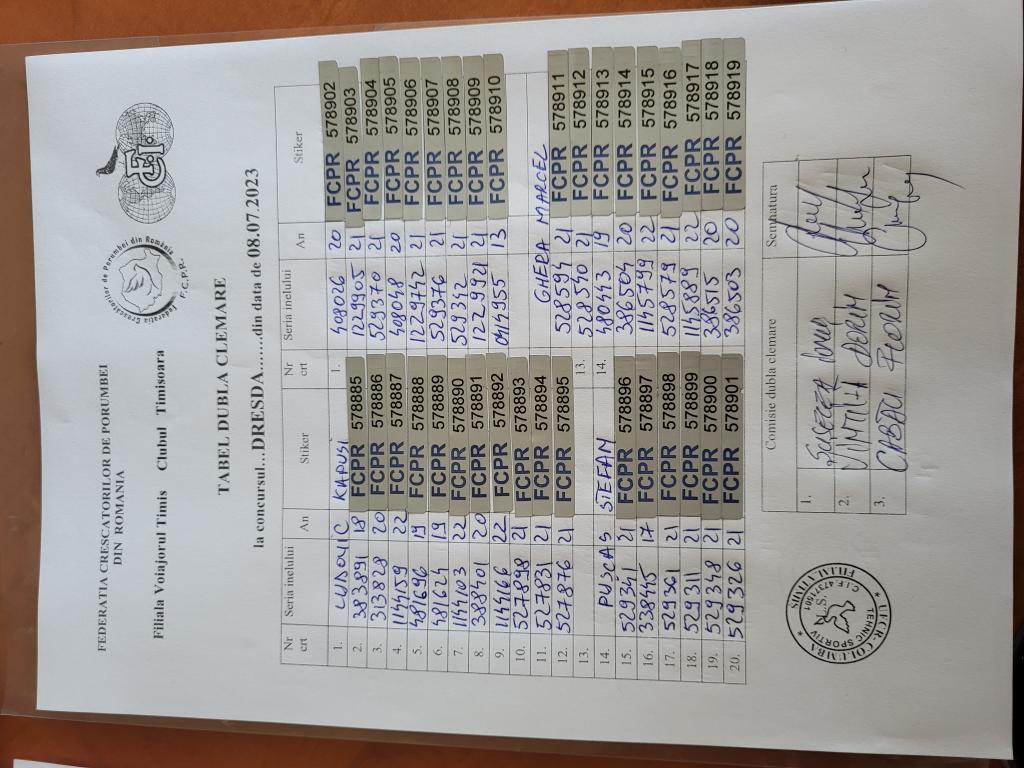 FEDERATIA CRESCATORILOR DE PORUMBEI
DIN ROMANIA
Federatia Crescatorilor de Porumbei din România
F.C.P.R.
FCI
Filiala Voiajorul Timis Clubul Timisoara
TABEL DUBLA CLEMARE
la concursul...DRESDA.......din data de 08.07.2023
Nr crt Seria inelului An Stiker Nr crt Seria inelului An Stiker
1. KAPUSI 1. 408026 20 FCPR 578902
2. 383891 18 FCPR 578885 1229905 21 FCPR 578903
3. 313828 20 FCPR 578886 529370 21 FCPR 578904
4. 1144159 22 FCPR 578887 408048 20 FCPR 578905
5. 481696 19 FCPR 578888 1229742 21 FCPR 578906
6. 481624 19 FCPR 578889 529376 21 FCPR 578907
7. 1144103 22 FCPR 578890 529342 21 FCPR 578908
8. 388401 20 FCPR 578891 1229921 21 FCPR 578909
9. 1144166 22 FCPR 578892 0414955 13 FCPR 578910
10. 527898 21 FCPR 578893
11. 527831 21 FCPR 578894 GHERA MARCEL
12. 527876 21 FCPR 578895 528594 21 FCPR 578911
13. 13. 528540 21 FCPR 578912
14. PUSCAS STEFAN 14. 480443 19 FCPR 578913
15. 529341 21 FCPR 578896 386504 20 FCPR 578914
16. 338445 17 FCPR 578897 1145799 22 FCPR 578915
17. 529361 21 FCPR 578898 528579 21 FCPR 578916
18. 529311 21 FCPR 578899 1145889 22 FCPR 578917
19. 529348 21 FCPR 578900 386515 20 FCPR 578918
20. 529326 21 FCPR 578901 386503 20 FCPR 578919
Comisie dubla clemare Semnatura
1.
2. VINTILA DORIN
3. FLORIN
UFCR-COLUMBA
FILIALA TIMIS
C.I.F. 47371801
L.S.
TEHNIC SPORTIV